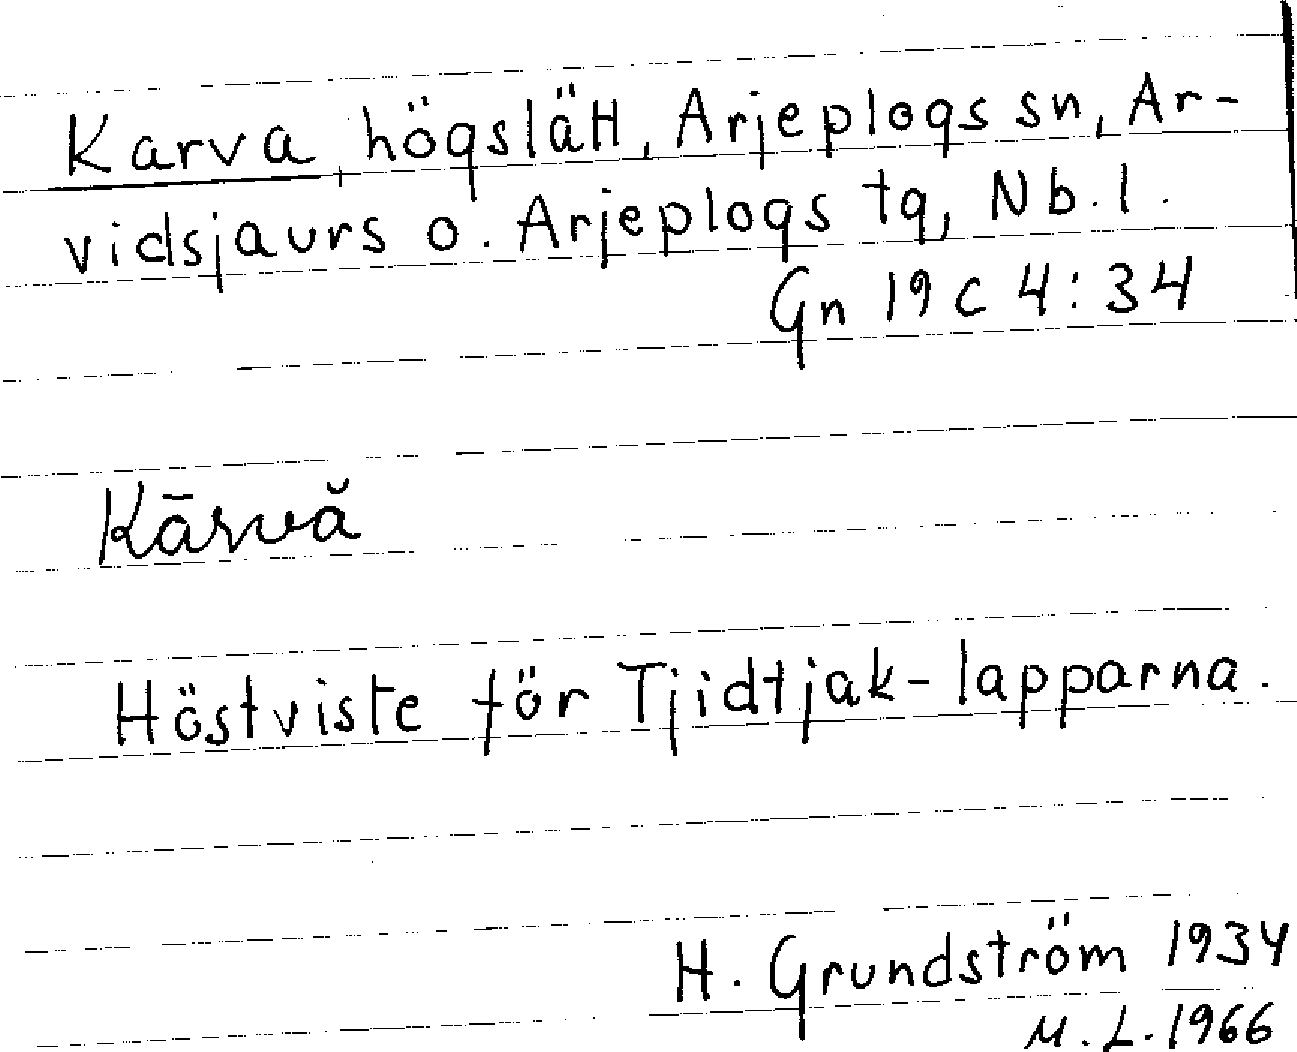 Karva, högslätt, Arjeplogs sn, Ar-
vidsjaurs o. Arjeplogs tg, Nb. l.
Gn 19 c 4:34
Kārvă
Höstviste för Tjidtjak-lapparna.
H. Grundström 1934
M. L. 1966